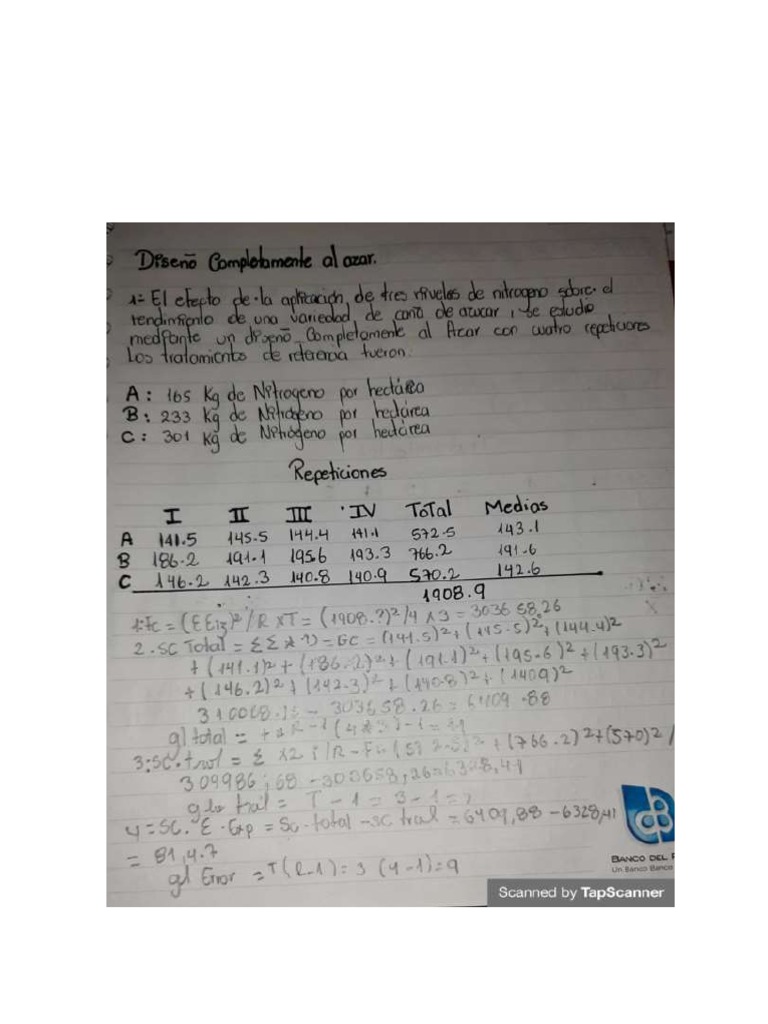 Diseño Completamente al azar.
1= El efecto de la aplicación, de tres niveles de nitrogeno sobre el
rendimiento de una variedad de caña de azucar, se estudio
mediante un diseño Completamente al Azar con cuatro repeticiones
Los tratamientos de referencia fueron:
A: 165 Kg de Nitrogeno por hectárea
B: 233 Kg de Nitrógeno por hectárea
C: 301 Kg de Nitrógeno por hectárea
Repeticiones
I II III IV ToTal Medias
A 141.5 145.5 144.4 141.1 572.5 143.1
B 186.2 191.1 195.6 193.3 766.2 191.6
C 146.2 142.3 140.8 140.9 570.2 142.6
1908.9
1:Fc = (ΣEij)²/R XT = (1908.9)²/4 x3 = 303658,26
2.SC Total = ΣΣ = (141.5)²+(145.5)²+(144.4)²
+(141.1)²+(186.2)²+(191.1)²+(195.6)²+(193.3)²
+(146.2)²+(142.3)²+(140.8)²+(1409)²
303658.26 = 6409.88
gl total =
3:SC.trat = +(766.2)²+(570)²/
309986,68 - 303658,26=6328,41
trat = T-1 = 3-1 =
4=SC.E.Exp = Sc.total -sc trat =6409,88-6328,41
= 81,4.7
gl Error = T(R-1)=3 (4-1)=9
BANCO DEL
Un Banco Banco
Scanned by TapScanner